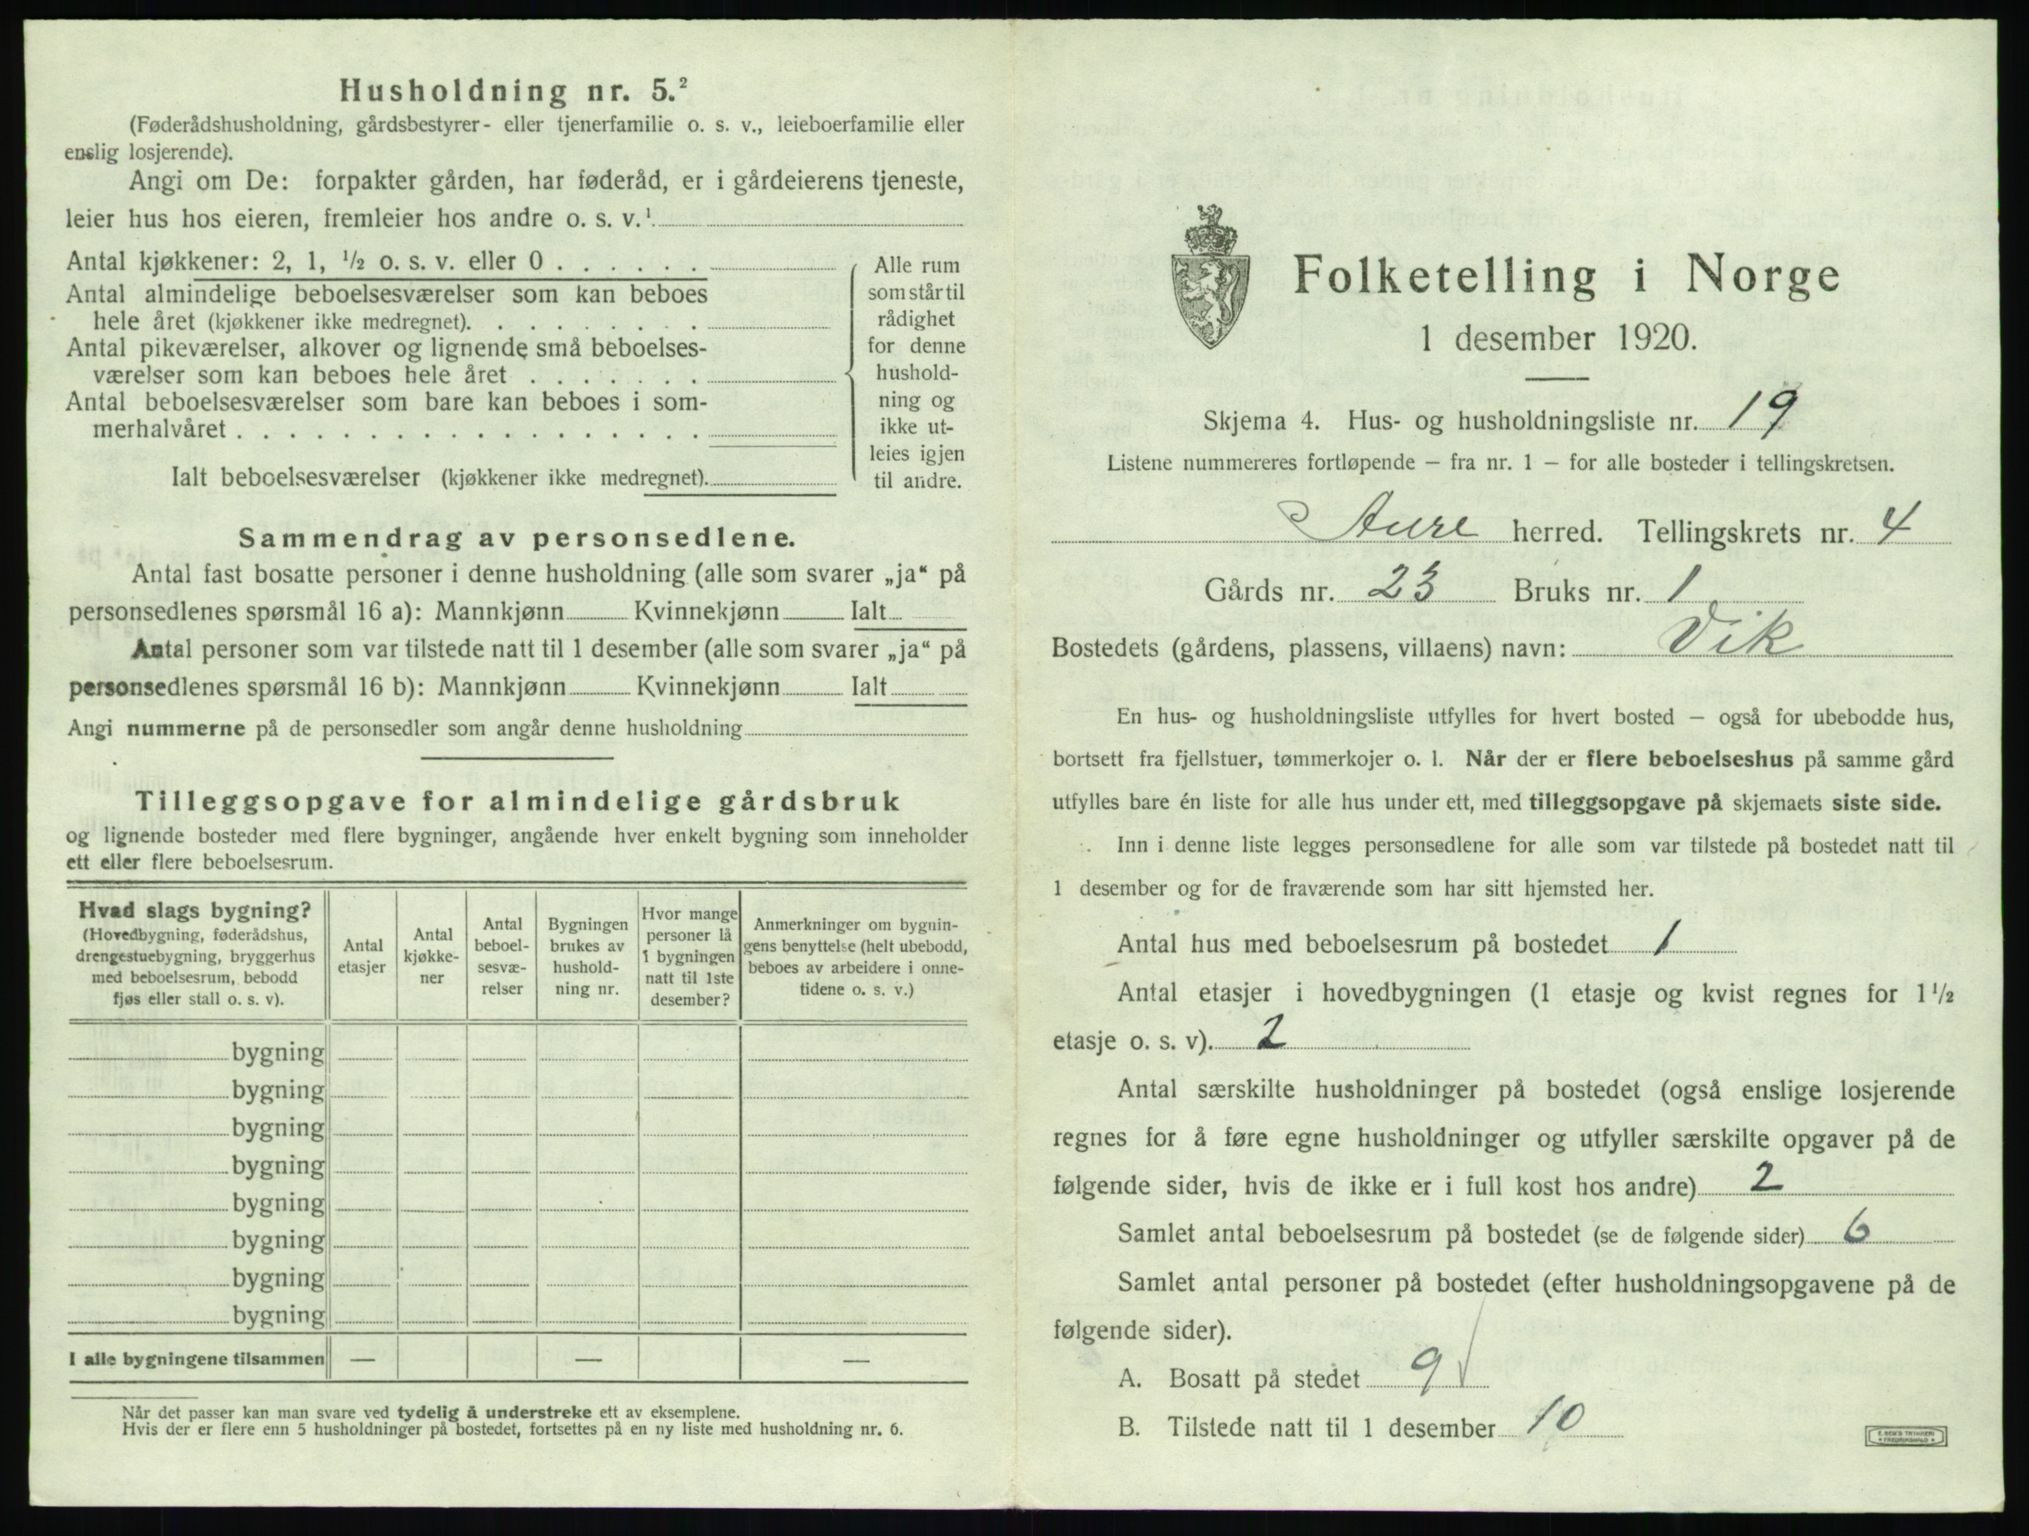 Husholdning nr. 5.²
(Føderådshusholdning, gårdsbestyrer- eller tjenerfamilie o. s. v., leieboerfamilie eller
enslig losjerende).
Angi om De: forpakter gården, har føderåd, er i gårdeierens tjeneste,
leier hus hos eieren, fremleier hos andre o. s. v.¹
Antal kjøkkener: 2, 1, ½ o. s. v. eller 0 . . . . . .
Antal almindelige beboelsesværelser som kan beboes
hele året (kjøkkener ikke medregnet). . . . . . . . .
Antal pikeværelser, alkover og lignende små beboelses-
værelser som kan beboes hele året . . . . . . .
Antal beboelsesværelser som bare kan beboes i som-
merhalvåret . . . . . . . . . . . . . . . . . .
Ialt beboelsesværelser (kjøkkener ikke medregnet).
Alle rum
som står til
rådighet
for denne
hushold-
ning og
ikke ut-
leies igjen
til andre.
Sammendrag av personsedlene.
Antal fast bosatte personer i denne husholdning (alle som svarer „ja“ på
personsedlenes spørsmål 16 a): Mannkjønn Kvinnekjønn Ialt
Antal personer som var tilstede natt til 1 desember (alle som svarer „ja“ på
personsedlenes spørsmål 16 b): Mannkjønn Kvinnekjønn Ialt
Angi nummerne på de personsedler som angår denne husholdning
Tilleggsopgave for almindelige gårdsbruk
og lignende bosteder med flere bygninger, angående hver enkelt bygning som inneholder
ett eller flere beboelsesrum.
Hvad slags bygning?
(Hovedbygning, føderådshus,
drengestuebygning, bryggerhus
med beboelsesrum, bebodd
fjøs eller stall o. s. v).
Antal
etasjer
Antal
kjøkke-
ner
Antal
beboel-
sesvæ-
relser
Bygningen
brukes av
hushold-
ning nr.
Hvor mange
personer lå
1 bygningen
natt til 1ste
desember?
Anmerkninger om bygnin-
gens benyttelse (helt ubebodd,
beboes av arbeidere i onne-
tidene o. s. v.)
bygning
bygning
bygning
bygning
bygning
bygning
bygning
bygning
I alle bygningene tilsammen — — —
Når det passer kan man svare ved tydelig å understreke ett av eksemplene.
Hvis der er flere enn 5 husholdninger på bostedet, fortsettes på en ny liste med husholdning nr. 6.
Folketelling i Norge
1 desember 1920.
Skjema 4. Hus- og husholdningsliste nr. 19
Listene nummereres fortløpende – fra nr. 1 – for alle bosteder i tellingskretsen.
Aure herred. Tellingskrets nr. 4
Gårds nr. 23 Bruks nr. 1
Bostedets (gårdens, plassens, villaens) navn: Vik
En hus- og husholdningsliste utfylles for hvert bosted – også for ubebodde hus,
bortsett fra fjellstuer, tømmerkojer o. l. Når der er flere beboelseshus på samme gård
utfylles bare én liste for alle hus under ett, med tilleggsopgave på skjemaets siste side.
Inn i denne liste legges personsedlene for alle som var tilstede på bostedet natt til
1 desember og for de fraværende som har sitt hjemsted her.
Antal hus med beboelsesrum på bostedet 1
Antal etasjer i hovedbygningen (1 etasje og kvist regnes for 1½
etasje o. s. v). 2
Antal særskilte husholdninger på bostedet (også enslige losjerende
regnes for å føre egne husholdninger og utfyller særskilte opgaver på de
følgende sider, hvis de ikke er i full kost hos andre) 2
Samlet antal beboelsesrum på bostedet (se de følgende sider) 6
Samlet antal personer på bostedet (efter husholdningsopgavene på de
følgende sider).
A. Bosatt på stedet 9 √
B. Tilstede natt til 1 desember 10